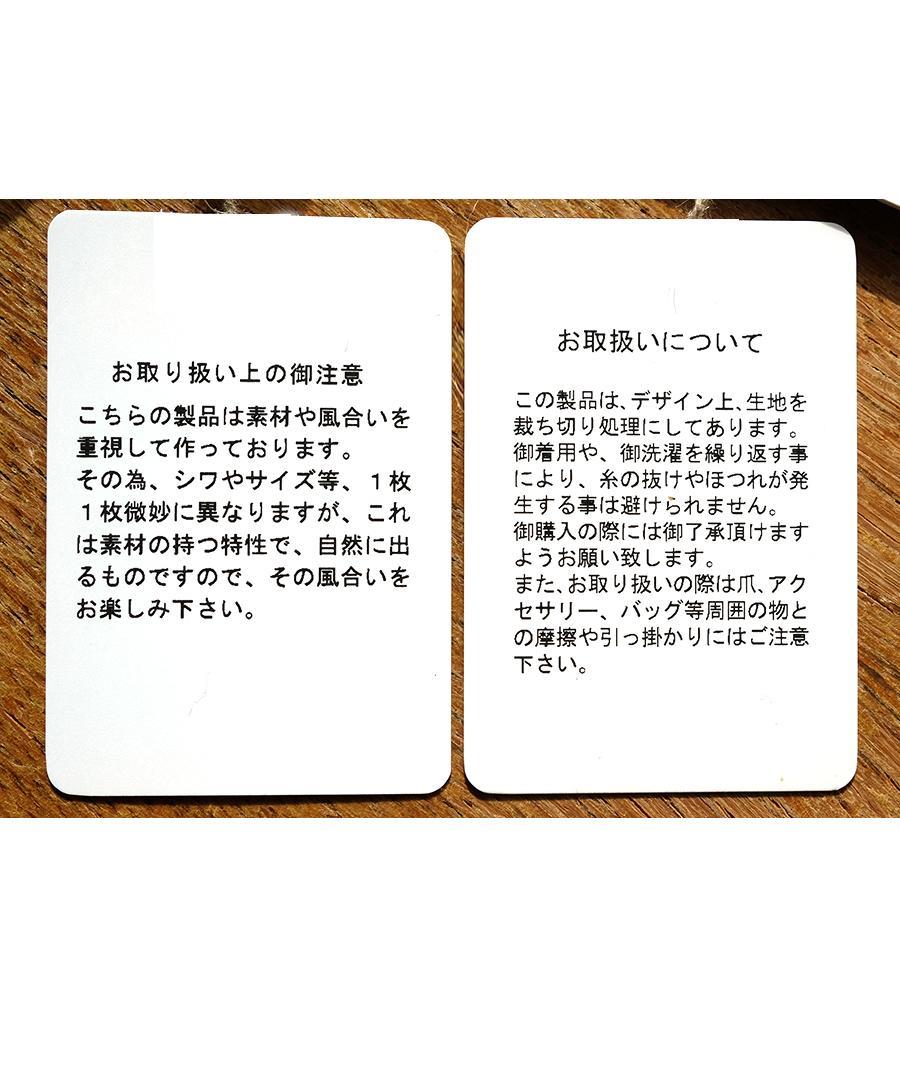 お取り扱い上の御注意
こちらの製品は素材や風合いを
重視して作っております。
その為、シワやサイズ等、１枚
１枚微妙に異なりますが、これ
は素材の持つ特性で、自然に出
るものですので、その風合いを
お楽しみ下さい。
お取扱いについて
この製品は、デザイン上、生地を
裁ち切り処理にしてあります。
御着用や、御洗濯を繰り返す事
により、糸の抜けやほつれが発
生する事は避けられません。
御購入の際には御了承頂けます
ようお願い致します。
また、お取り扱いの際は爪、アク
セサリー、バッグ等周囲の物と
の摩擦や引っ掛かりにはご注意
下さい。